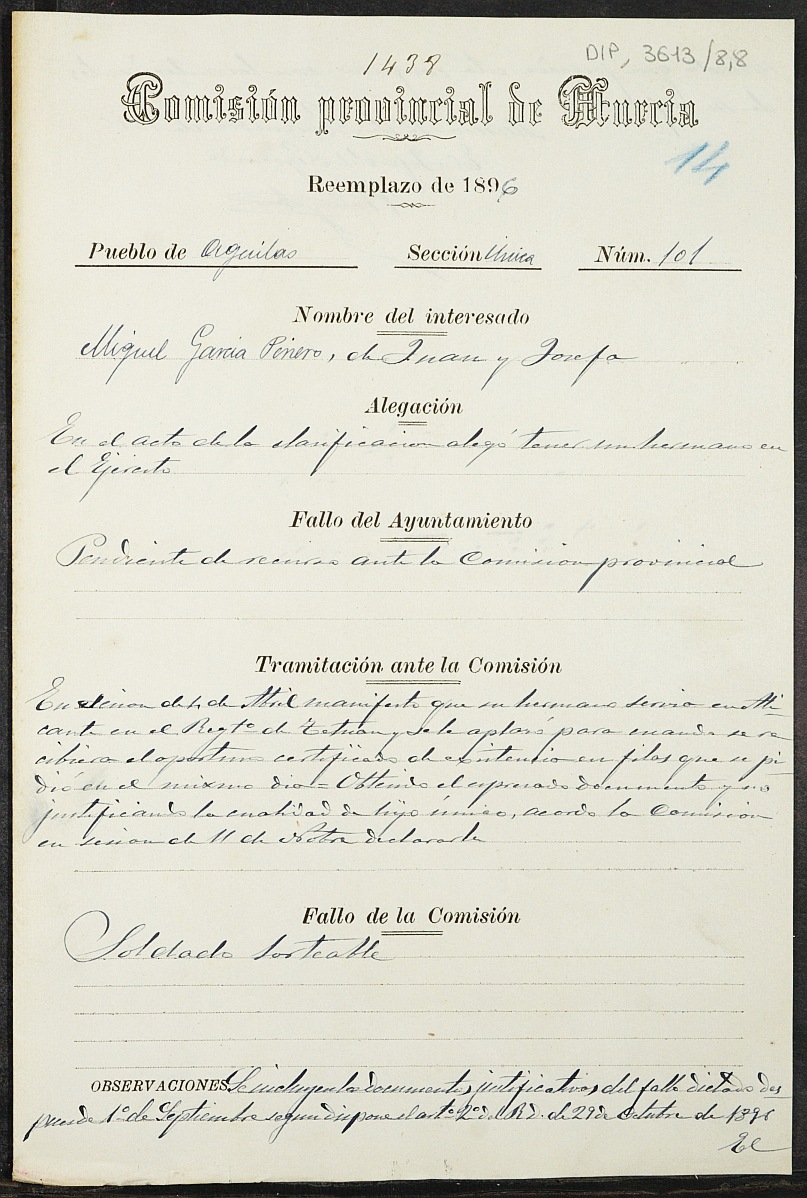 1438
DIP, 3613/8,8
Comisión provincial de Murcia
14
Reemplazo de 1896
Pueblo de Aguilas Sección Unica Núm. 101
Nombre del interesado
Miguel Garcia Piñero, de Juan y Josefa
Alegación
En el acto de la clasificacion alegó tener un hermano en
el Ejercito
Fallo del Ayuntamiento
Pendiente de recurso ante la Comision provincial
Tramitación ante la Comisión
En sesion de 4 de Abril manifestó que su hermano servia en Ali-
cante en el Regto de Tetuan y se le aplazó para cuando se re
cibiera el oportuno certificado de existencia en filas que se pi-
dió en el mismo dia = Obtenido el expresado documento y no
justificando la cualidad de hijo único, acordo la Comision
en sesion de 11 de Nobre declararle
Fallo de la Comisión
Soldado sorteable
OBSERVACIONES Se incluyen los documentos justificativos del fallo dictado des-
pues de 1º de Septiembre segun dispone el artº 2º del R.D. de 29 de Octubre de 1896